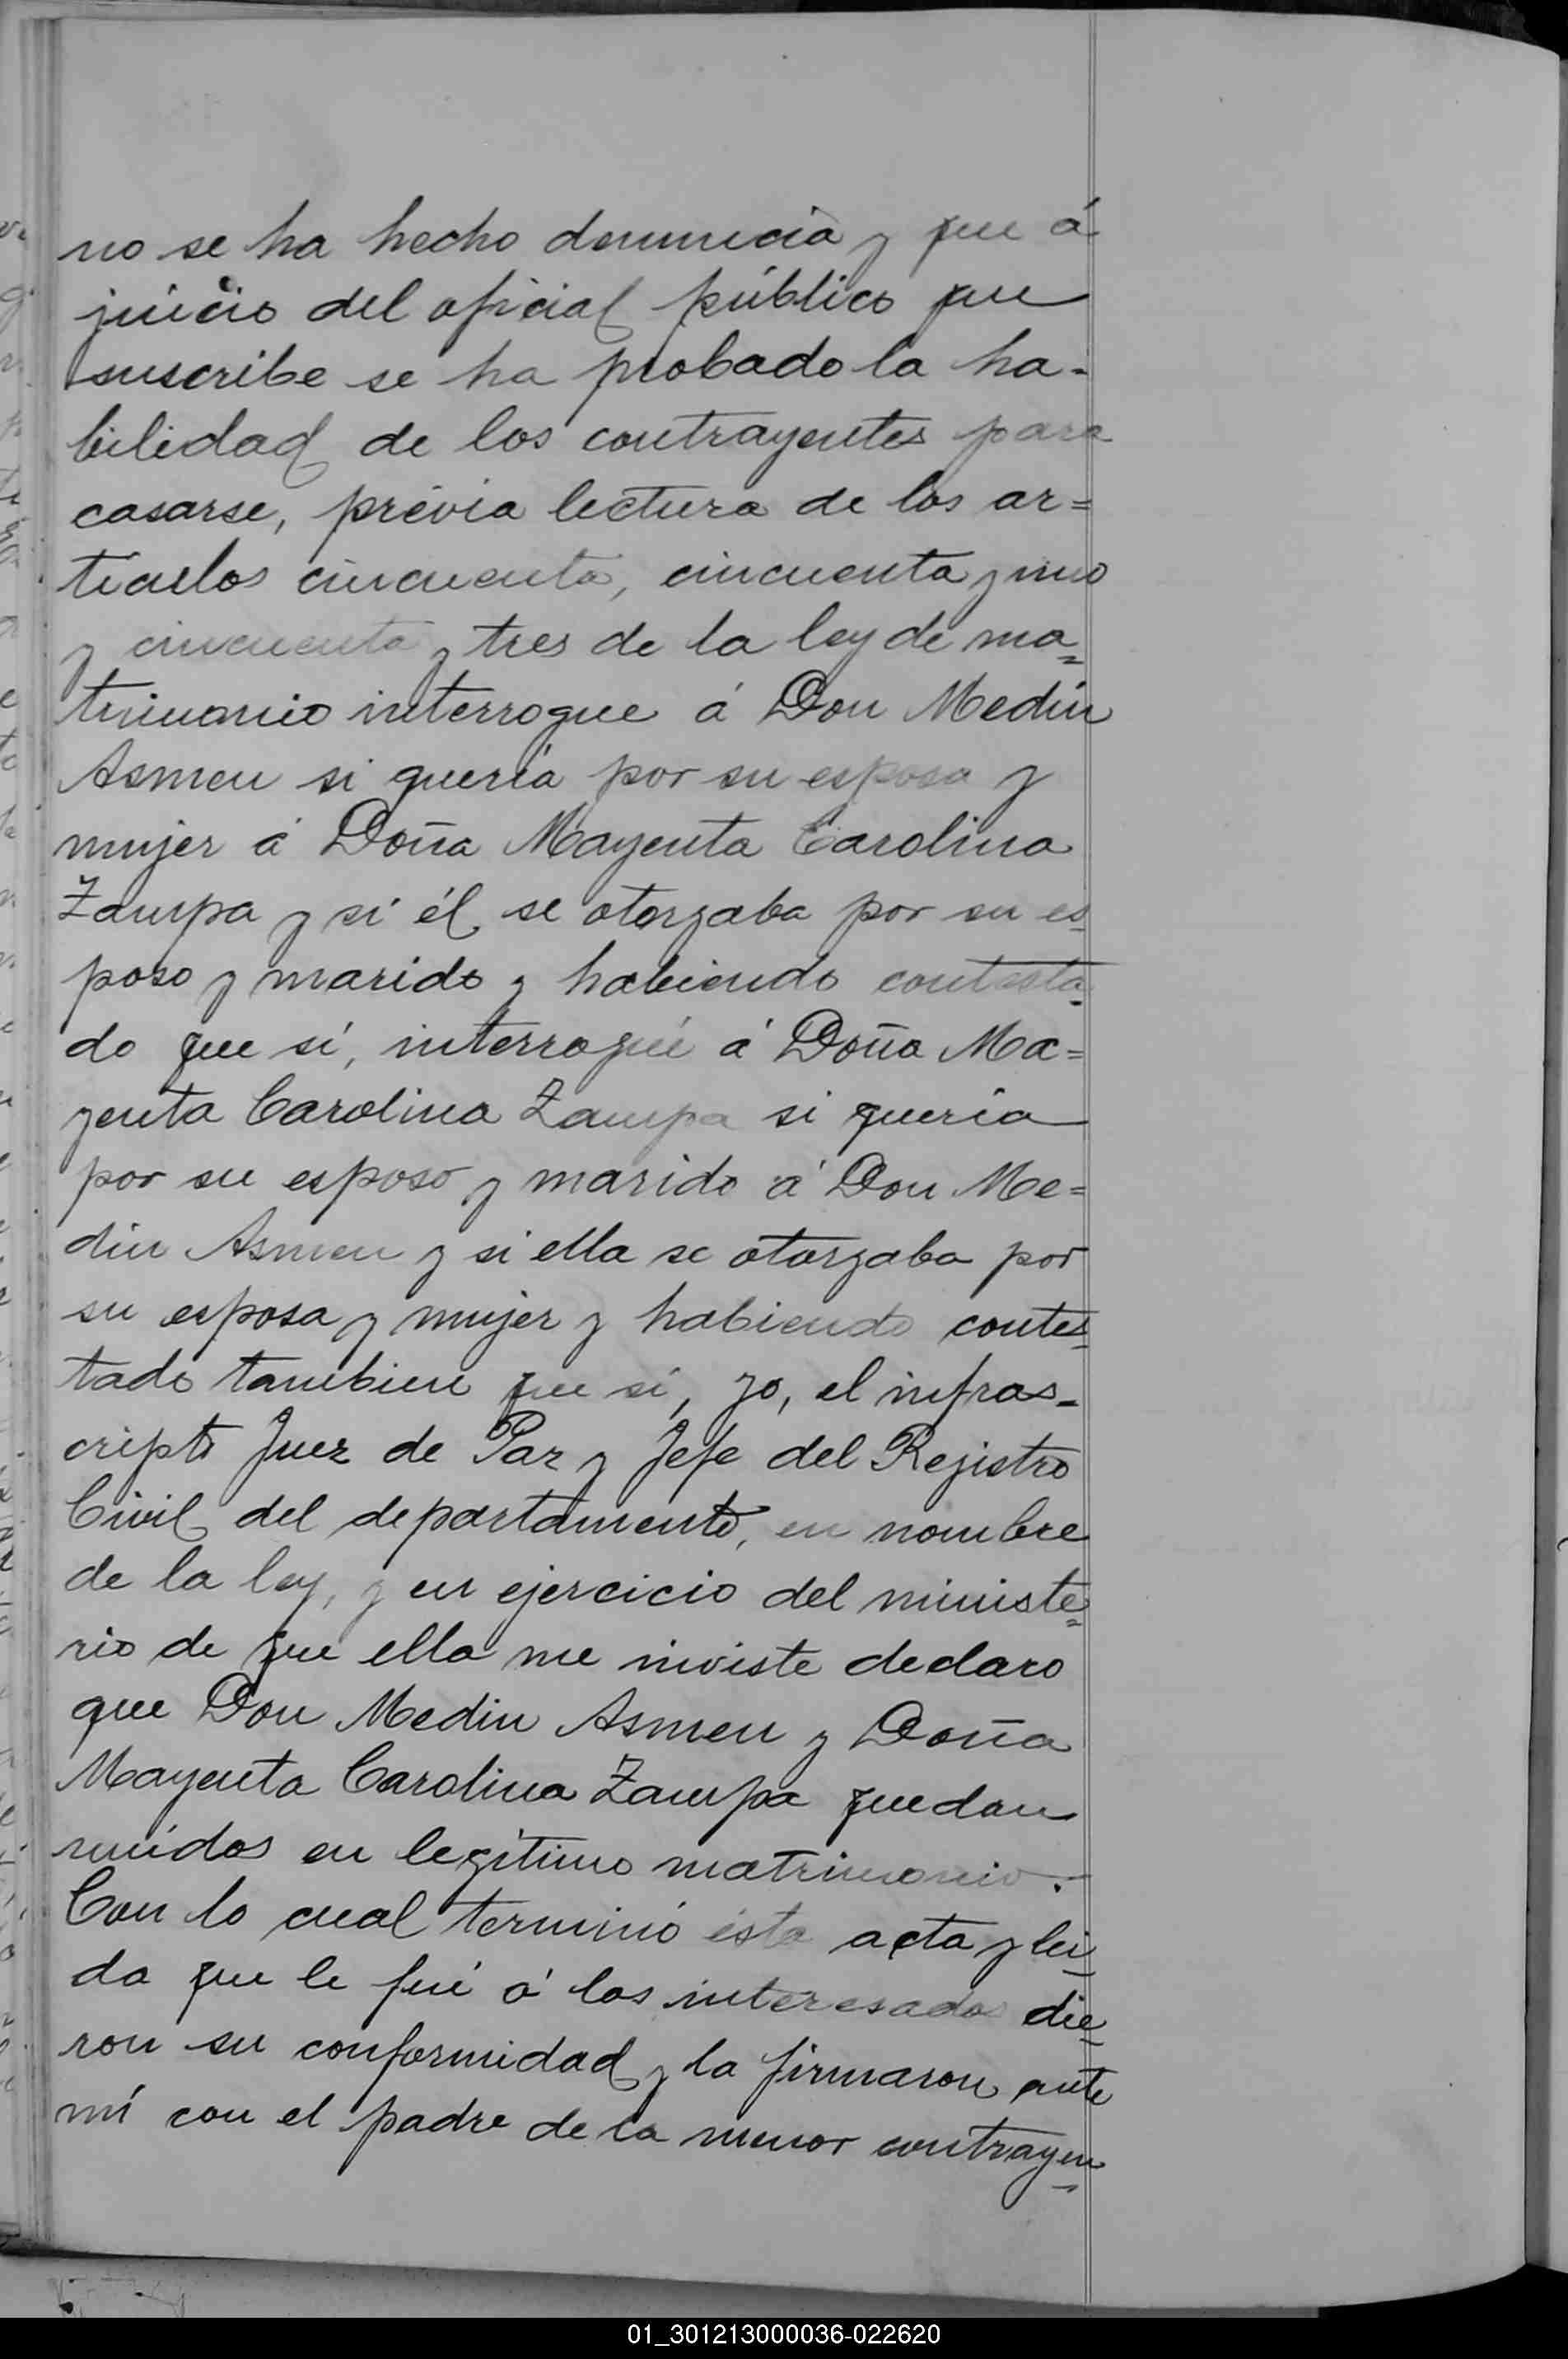 no se ha hecho denuncia y que á
juicio del oficial público que
suscribe se ha probado la ha-
bilidad de los contrayentes para
casarse, prévia lectura de los ar=
ticulos cincuenta, cincuenta y uno
y cincuenta y tres de la ley de ma=
trimonio interrogue á Don Medin
Asmen si quería por su esposa y
mujer á Doña Mayenta Carolina
Zampa y si él se otorgaba por su es=
poso y marido y habiendo contesta=
do que sí, interrogué á Doña Ma=
yenta Carolina Zampa si quería
por su esposo y marido á Don Me=
din Asmen y si ella se otorgaba por
su esposa y mujer y habiendo contes=
tado tambien que sí, yo, el infras-
cripto Juez de Paz y Jefe del Registro
Civil del departamento, en nombre
de la ley, y en ejercicio del ministe=
rio de que ella me inviste declaro
que Don Medin Asmen y Doña
Mayenta Carolina Zampa quedan
unidos en legítimo matrimonio.
Con lo cual terminó ésta acta y lei=
da que le fué á los interesados die=
ron su conformidad y la firmaron ante
mí con el padre de la menor contrayen=
01_301213000036-022620